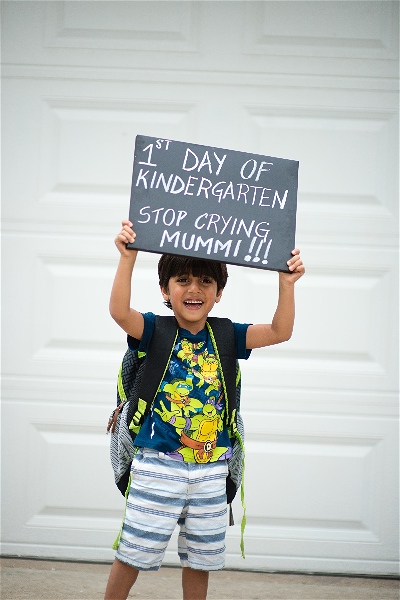 1ST DAY OF
KINDERGARTEN
STOP CRYING
MUMMI!!!